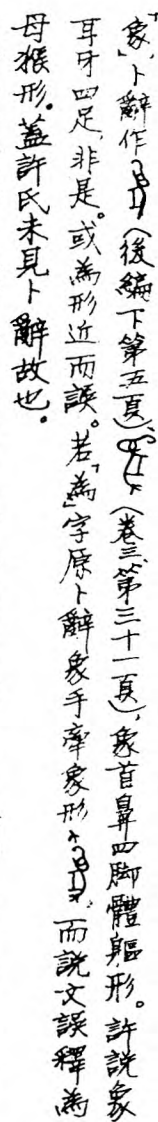 「象」,卜辭作(後編下第五頁),(卷三第三十一頁),象首鼻四脚體軀形。許說象
耳牙四足,非是。或為形近而誤。若「為」字原卜辭象手牽象形,而說文誤釋為
母猴形。蓋許氏未見卜辭故也。